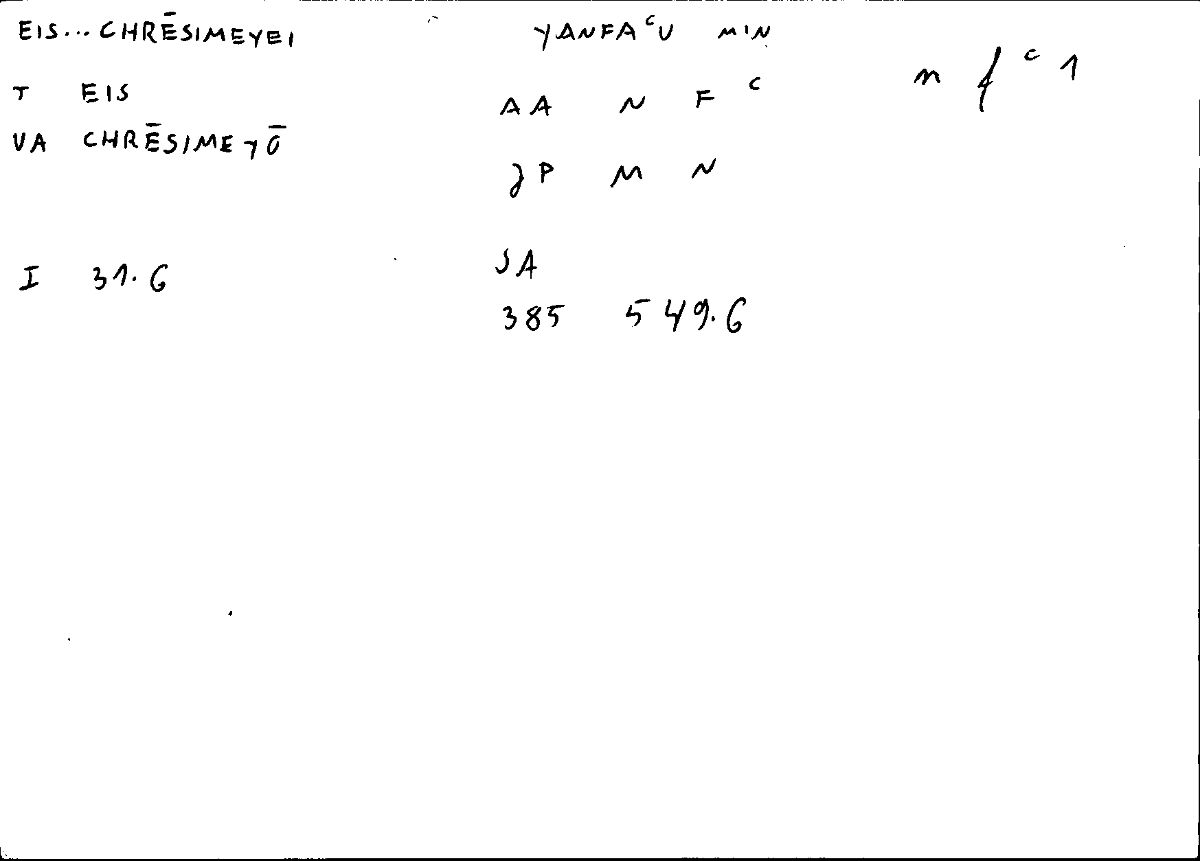 EIS...CHRĒSIMEYEI YANFAᶜU MIN
m f ᶜ 1
T EIS AA N F ᶜ
VA CHRĒSIMEYŌ
JP M N
JA
I 31.6
385 549.6